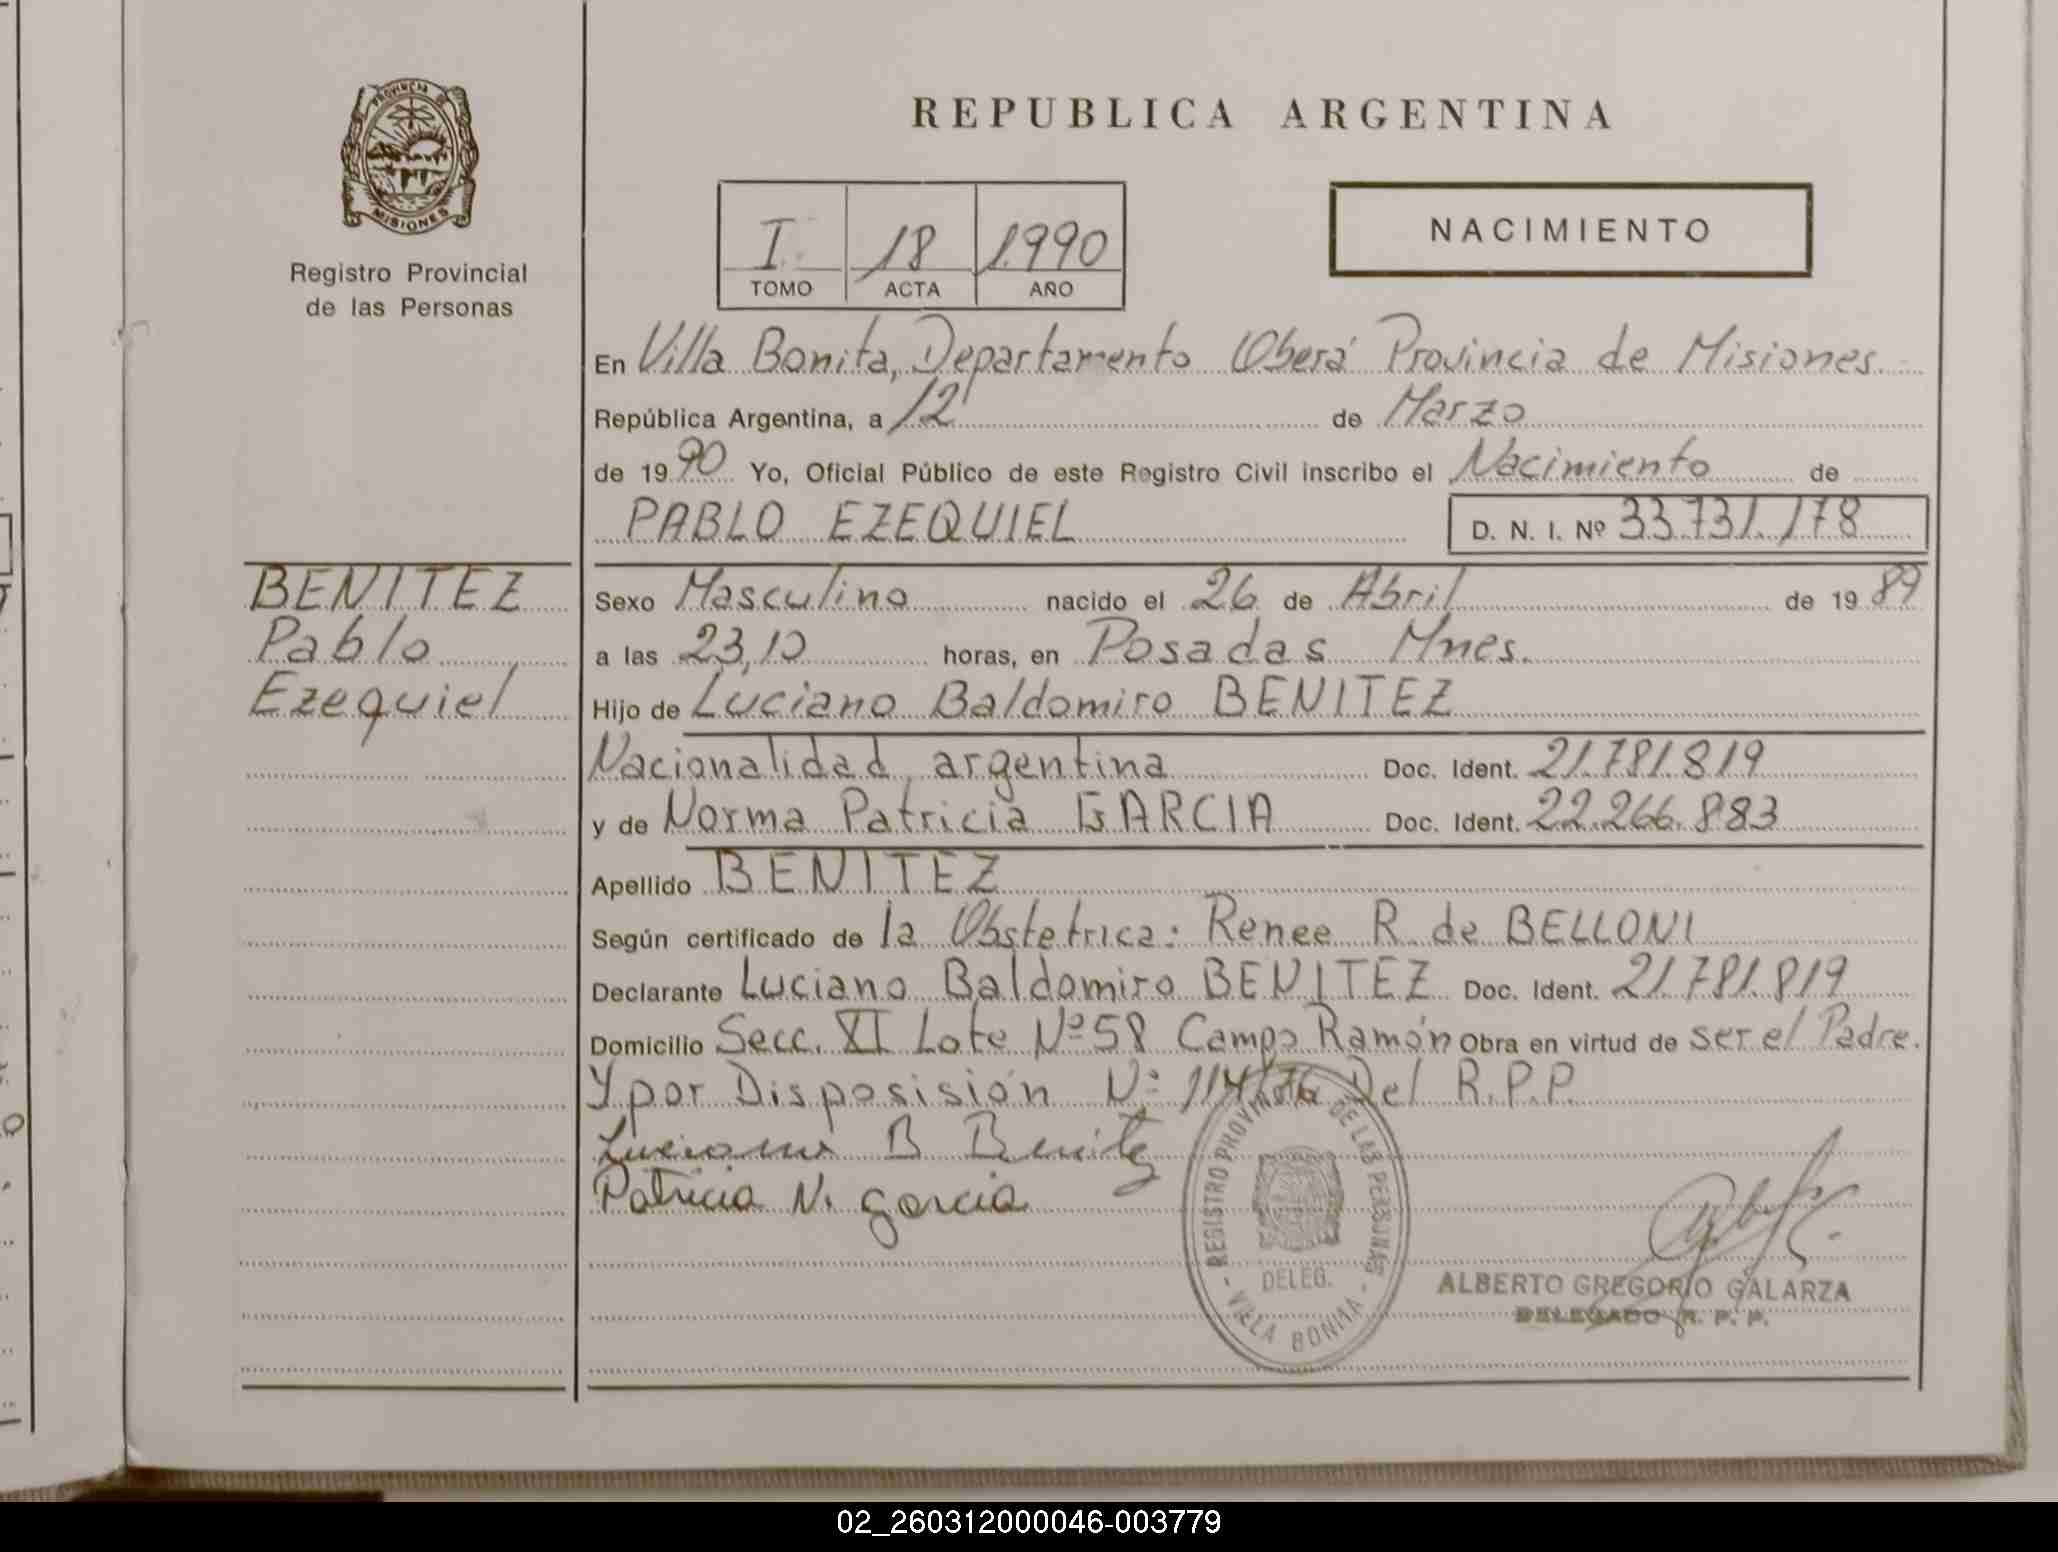 PROVINCIA DE
MISIONES
Registro Provincial
de las Personas
BENITEZ
Pablo
Ezequiel
REPUBLICA ARGENTINA
I. 18 1.990
TOMO ACTA AÑO
NACIMIENTO
En Villa Bonita, Departamento Oberá Provincia de Misiones.
República Argentina, a 12 de Marzo
de 1990 Yo, Oficial Público de este Registro Civil inscribo el Nacimiento de
PABLO EZEQUIEL D. N. I. Nº 33.731.178
Sexo Masculino nacido el 26 de Abril de 1989
a las 23,10 horas, en Posadas Mnes.
Hijo de Luciano Baldomiro BENITEZ
Nacionalidad argentina Doc. Ident. 21.781.819
y de Norma Patricia GARCIA Doc. Ident. 22.266.883
Apellido BENITEZ
Según certificado de la Obstetrica: Renee R. de BELLONI
Declarante Luciano Baldomiro BENITEZ Doc. Ident. 21.781.819
Domicilio Secc. XI Lote Nº 58 Campo Ramón Obra en virtud de ser el Padre.
Y por Disposisión Nº 114/76 Del R.P.P.
Luciano B Benitez
Patricia N. garcia
REGISTRO PROVINCIAL DE LAS PERSONAS
DELEG.
- VILLA BONITA -
ALBERTO GREGORIO GALARZA
DELEGADO R. P. P.
02_260312000046-003779